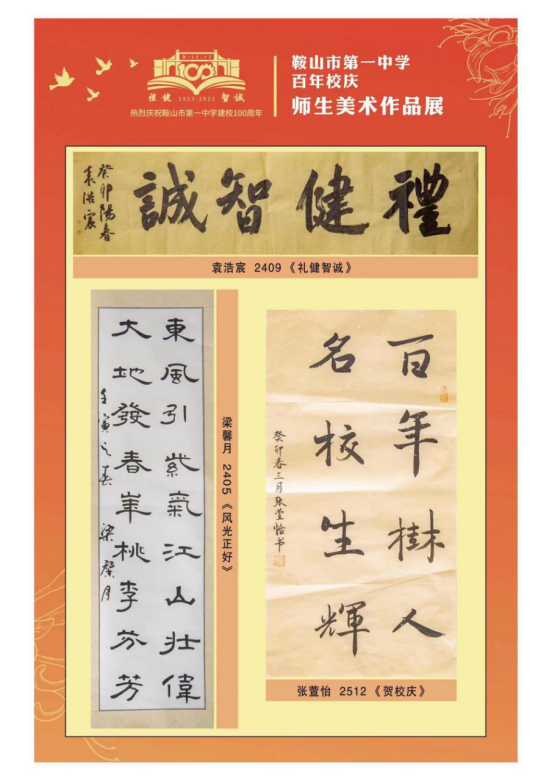 100
禮健 1923-2023 智誠
热烈庆祝鞍山市第一中学建校100周年
鞍山市第一中学
百年校庆
师生美术作品展
禮健智誠
癸卯陽春
袁浩宸
袁浩宸 2409《礼健智诚》
東風引紫氣江山壯偉
大地發春華桃李芬芳
壬寅之春 梁馨月
梁馨月 2405《风光正好》
百年樹人
名校生輝
癸卯春三月张萱怡书
张萱怡 2512《贺校庆》